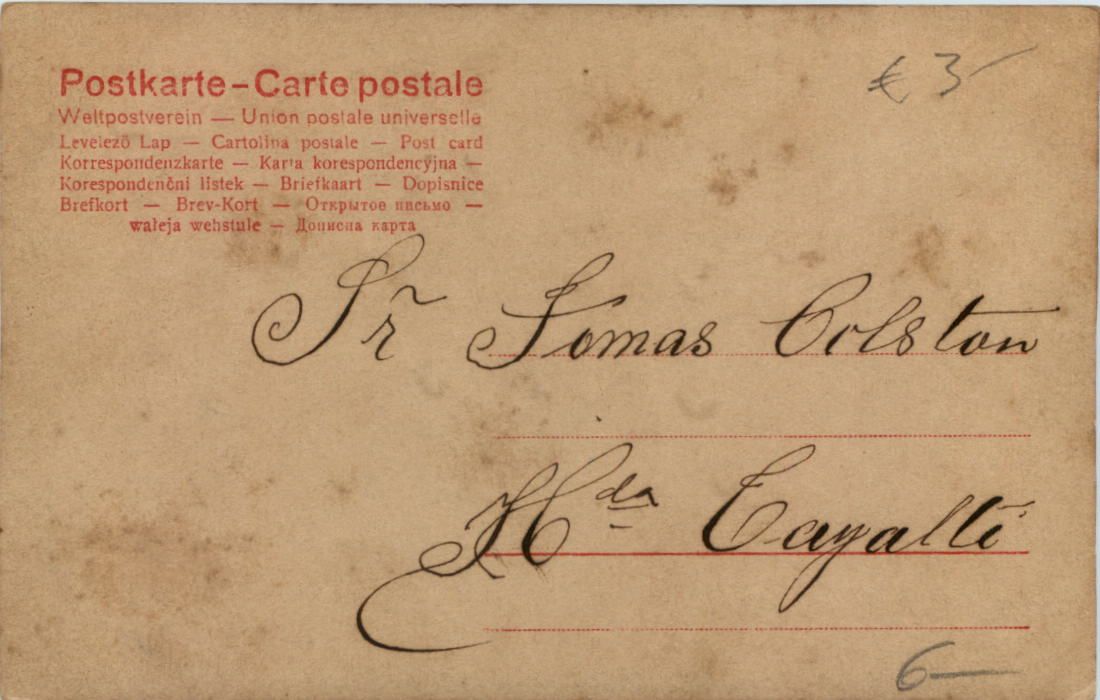 Postkarte – Carte postale
€ 3
Weltpostverein — Union postale universelle
Levelező Lap — Cartolina postale — Post card
Korrespondenzkarte — Karta korespondencyjna —
Korespondenční listek — Briefkaart — Dopisnice
Brefkort — Brev-Kort — Открытое письмо —
wałeja webstule — Дописна карта
Sr Tomas Colston
Hda Cayalti
6—